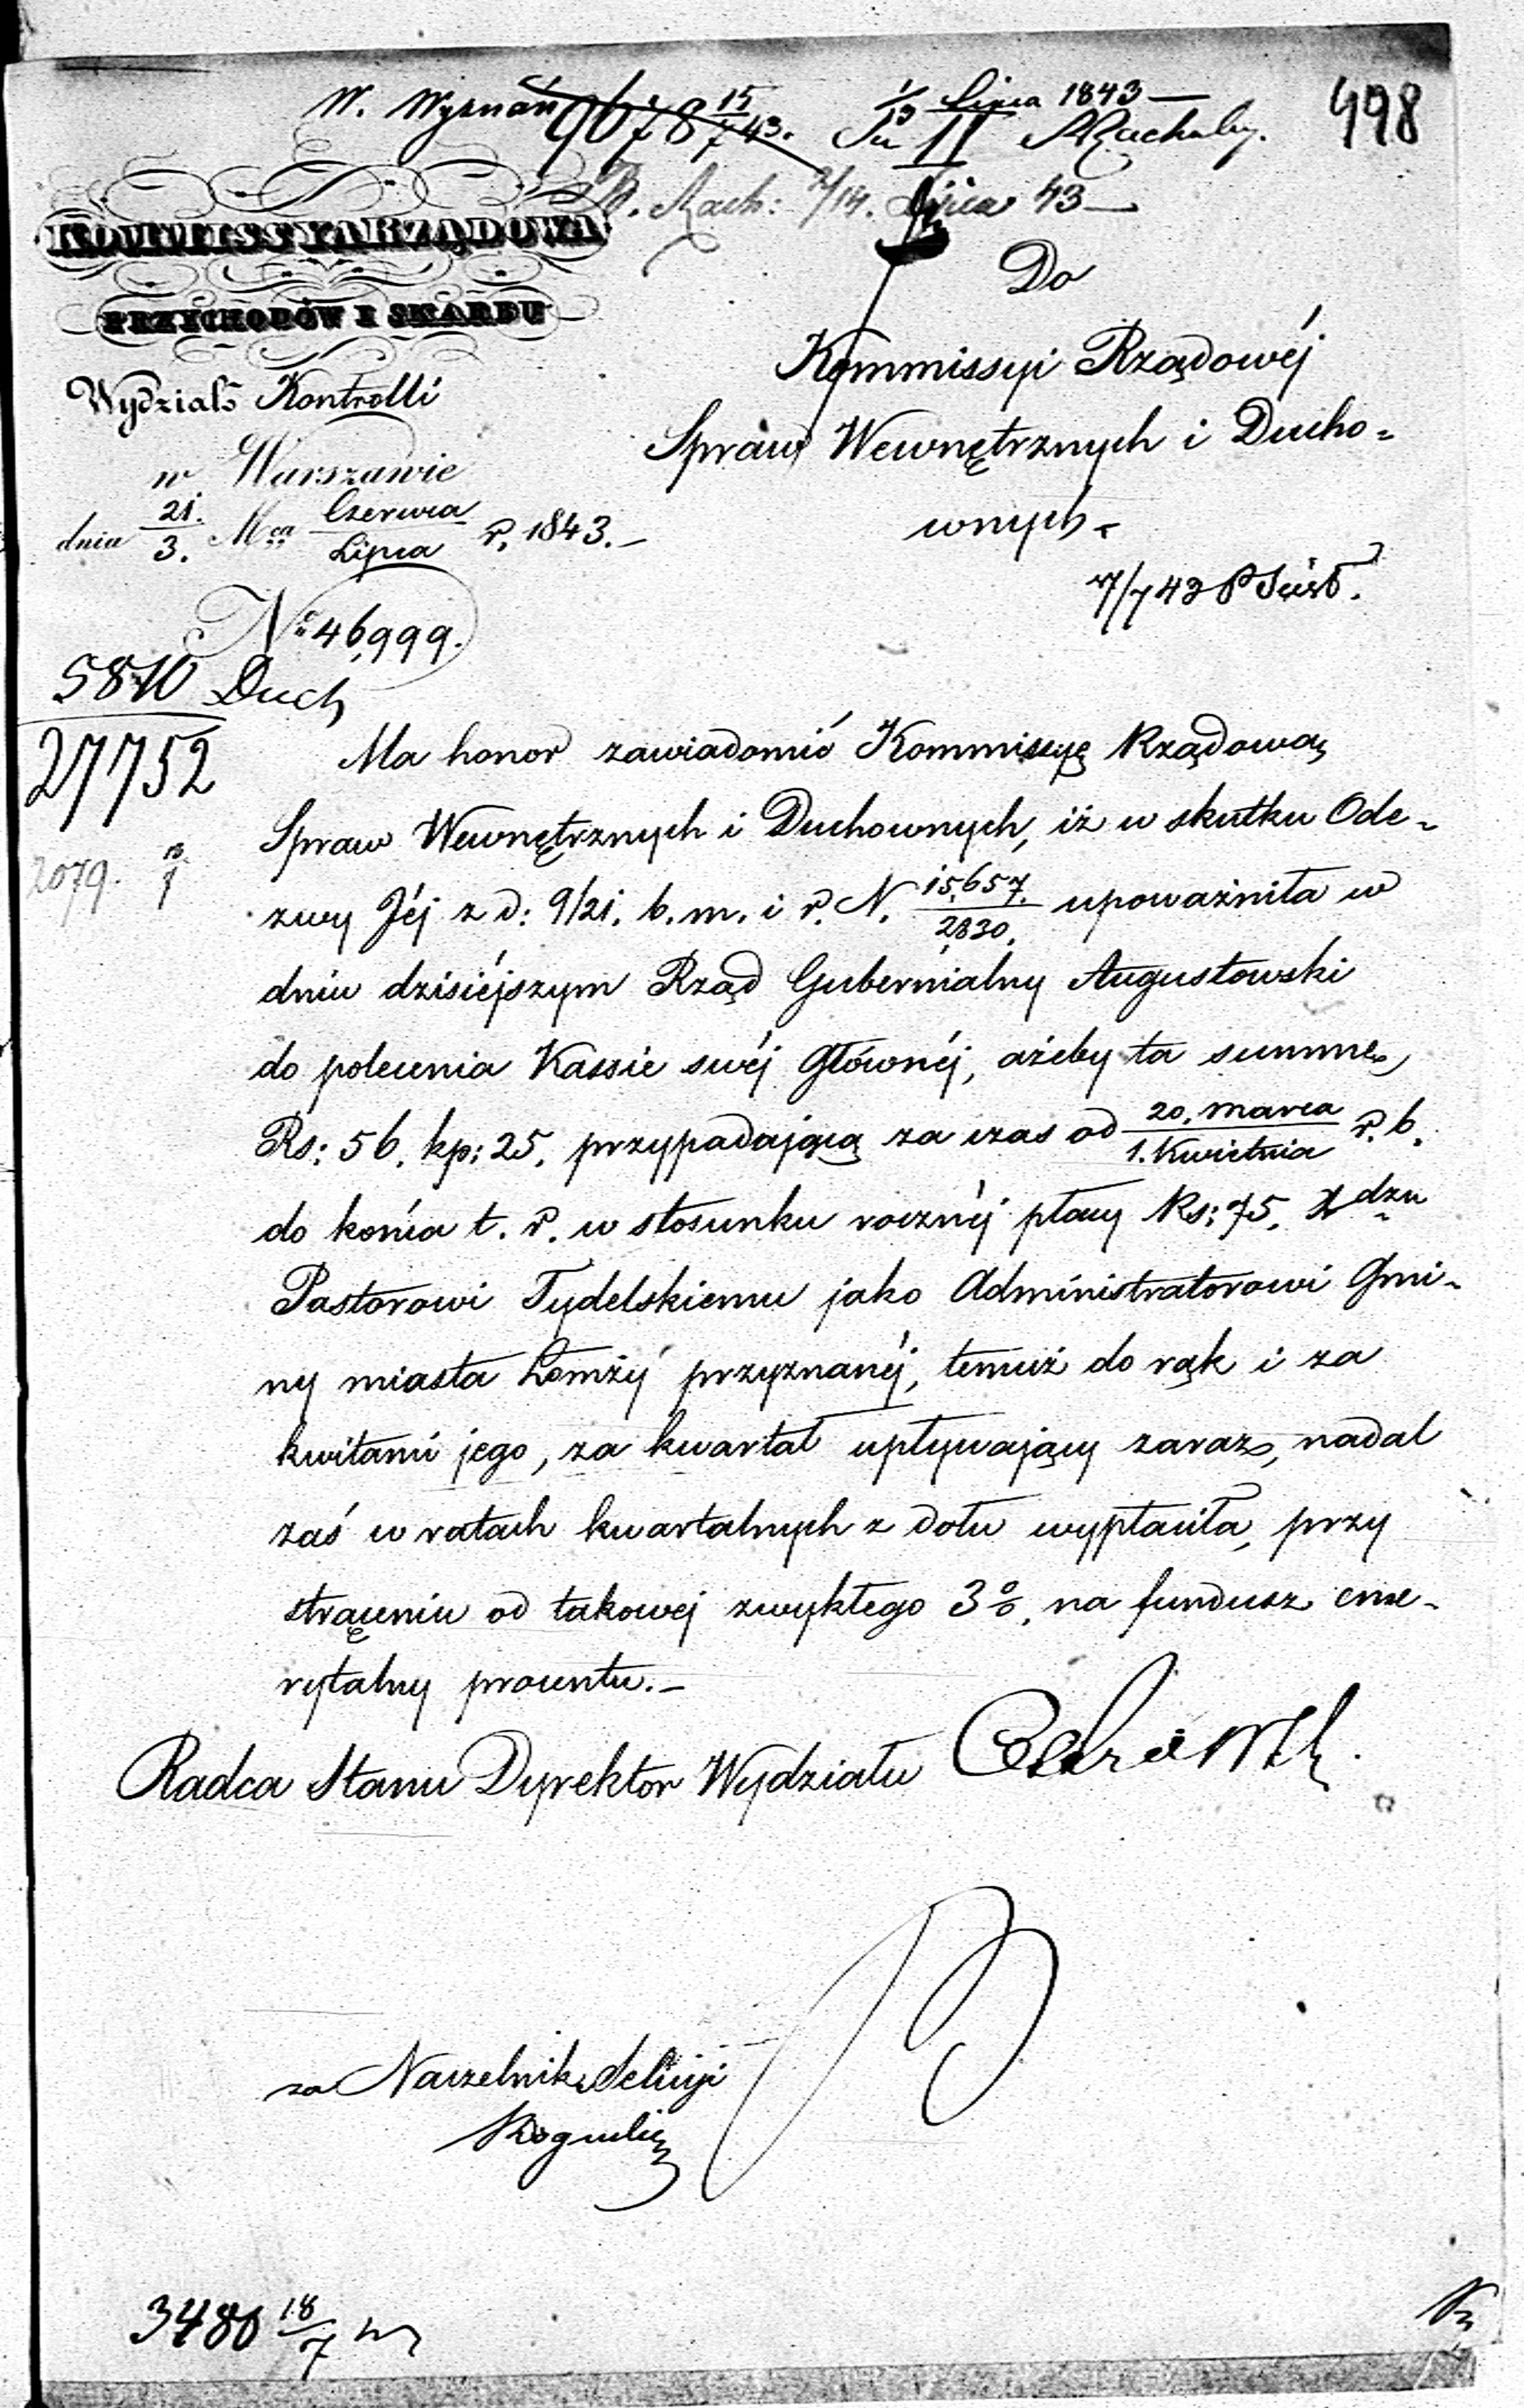 W. Wyznań 9678 15/7 43. 1/13 Lipca 1843 — 498
II
B. Rach: 2/14. Lipca 43 —
KOMMISSYA RZĄDOWA
PRZYCHODÓW I SKARBU
Wydział Kontrolli
w Warszawie
dnia 21./3. Mca Czerwca/Lipca r. 1843. —
No 46,999.
5810 Duch
27752
2079.
Do
Kommissyi Rządowéj
Spraw Wewnętrznych i Ducho=
wnych. —
17/7 43
Ma honor zawiadomić Kommissyę Rządową
Spraw Wewnętrznych i Duchownych, iż w skutku Ode-
zwy Jéj z d: 9/21. b. m. i r. N. 15,657./2830. upoważniła w
dniu dzisiéjszym Rząd Gubernialny Augustowski
do polecenia Kassie swéj Głównéj, ażeby ta summę
Rs: 56. kp: 25. przypadającą za czas od 20. Marca/1. Kwietnia r. b.
do końca t. r. w stosunku rocznéj płacy Rs: 75. Xdzu
Pastorowi Tydelskiemu jako Administratorowi Gmi-
ny miasta Łomży przyznanéj, temuż do rąk i za
kwitami jego, za kwartał upływający zaraz, nadal
zaś w ratach kwartalnych z dołu wypłaciła, przy
strąceniu od takowej zwykłego 3%. na fundusz eme-
rytalny procentu. —
Radca Stanu Dyrektor Wydziału
za Naczelnika Sekcyi
3480 18/7